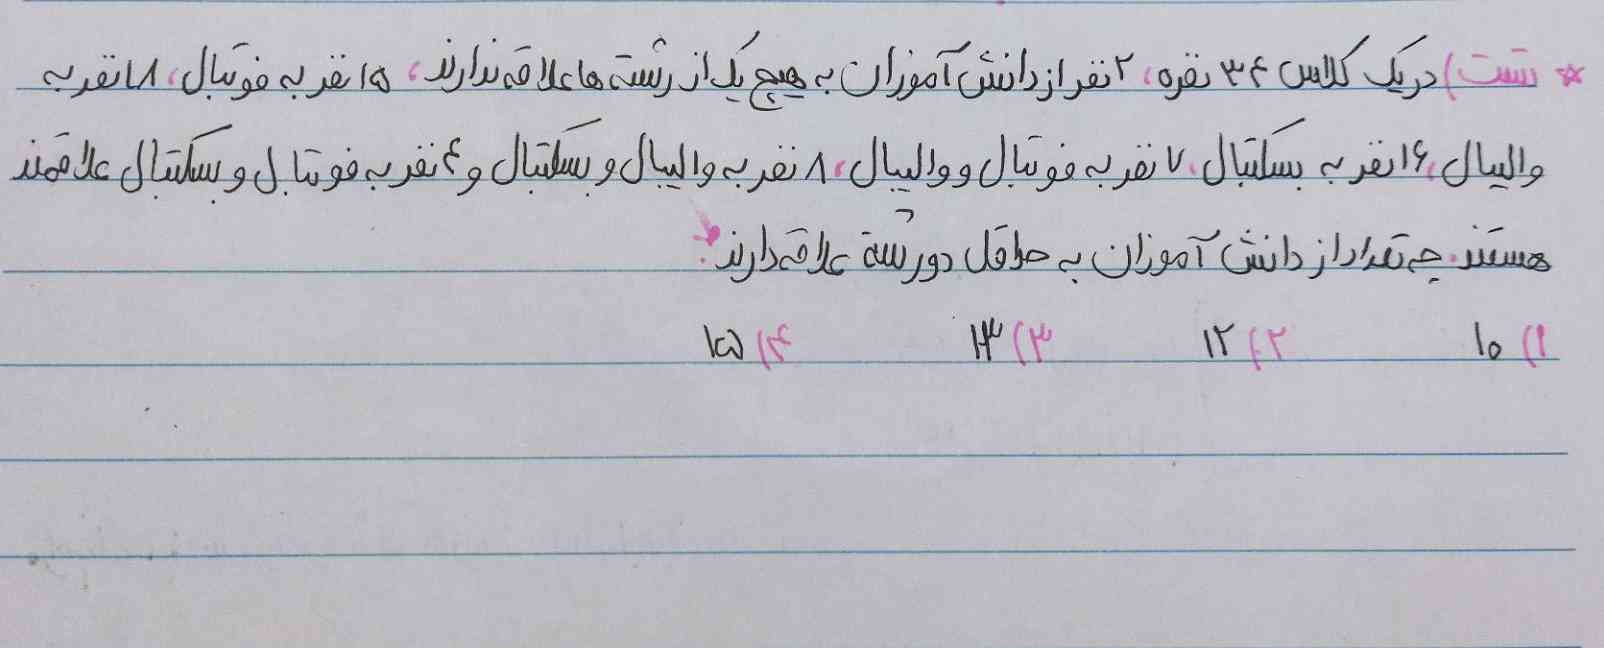 * تست) در یک کلاس ۳۴ نفره، ۲ نفر از دانش آموزان به هیچ یک از رشته ها علاقه ندارند، ۱۵ نفر به فوتبال، ۱۸ نفر به
والیبال، ۱۶ نفر به بسکتبال، ۷ نفر به فوتبال و والیبال، ۸ نفر به والیبال و بسکتبال و ۴ نفر به فوتبال و بسکتبال علاقمند
هستند. چه تعداد از دانش آموزان به حداقل دو رشته علاقه دارند؟
۱) ۱۰ ۲) ۱۲ ۳) ۱۳ ۴) ۱۵